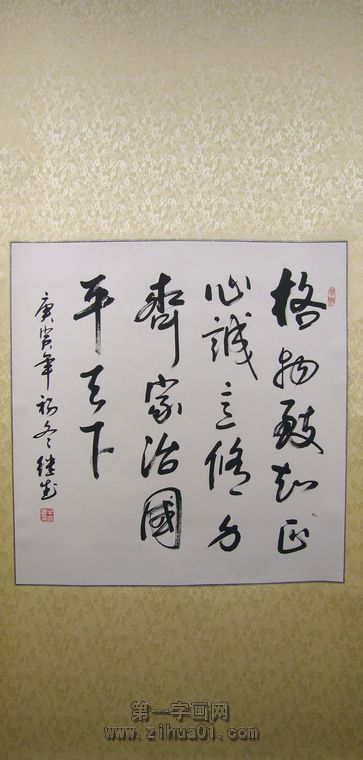 格物致知正
心誠意修身
齊家治國
平天下
庚寅年初冬继成
第一字画网
www.zihua01.com